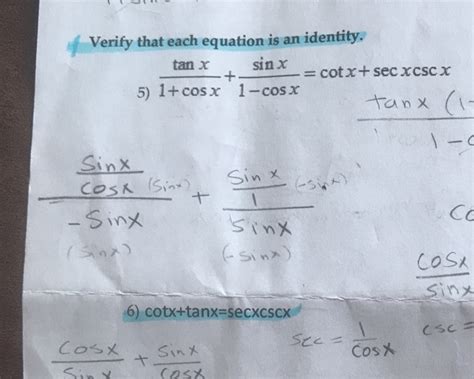 Verify that each equation is an identity.
5) tan x / 1+cos x + sin x / 1−cos x = cot x + sec x csc x
tanx (1-
1 -
Sinx / Cosx (Sinx) / -Sinx (Sinx) + Sin x / 1 (-Sinx) / Sinx (-Sinx)
Cosx / Sinx
6) cotx+tanx=secxcscx
Cosx / Sinx + Sinx / Cosx
Sec = 1 / Cosx
csc =